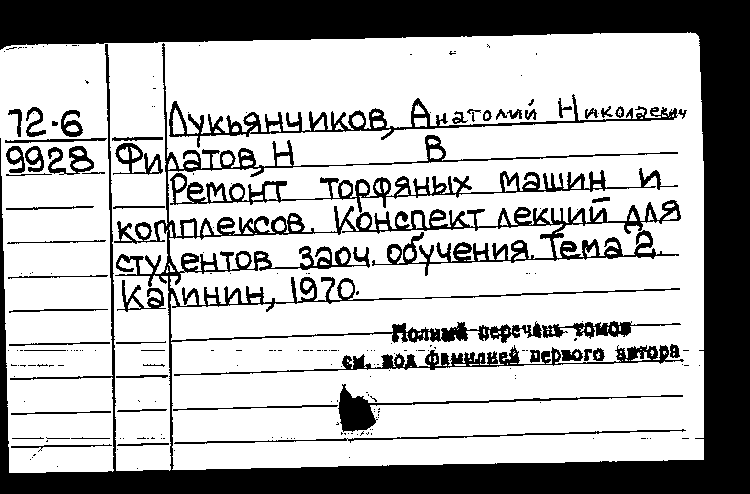 72-6 Лукьянчиков, Анатолий Николаевич
9928 Филатов, Н В
Ремонт торфяных машин и
комплексов. Конспект лекций для
студентов заоч. обучения. Тема 2.
Калинин, 1970.
Полный перечень томов
см. под фамилией первого автора